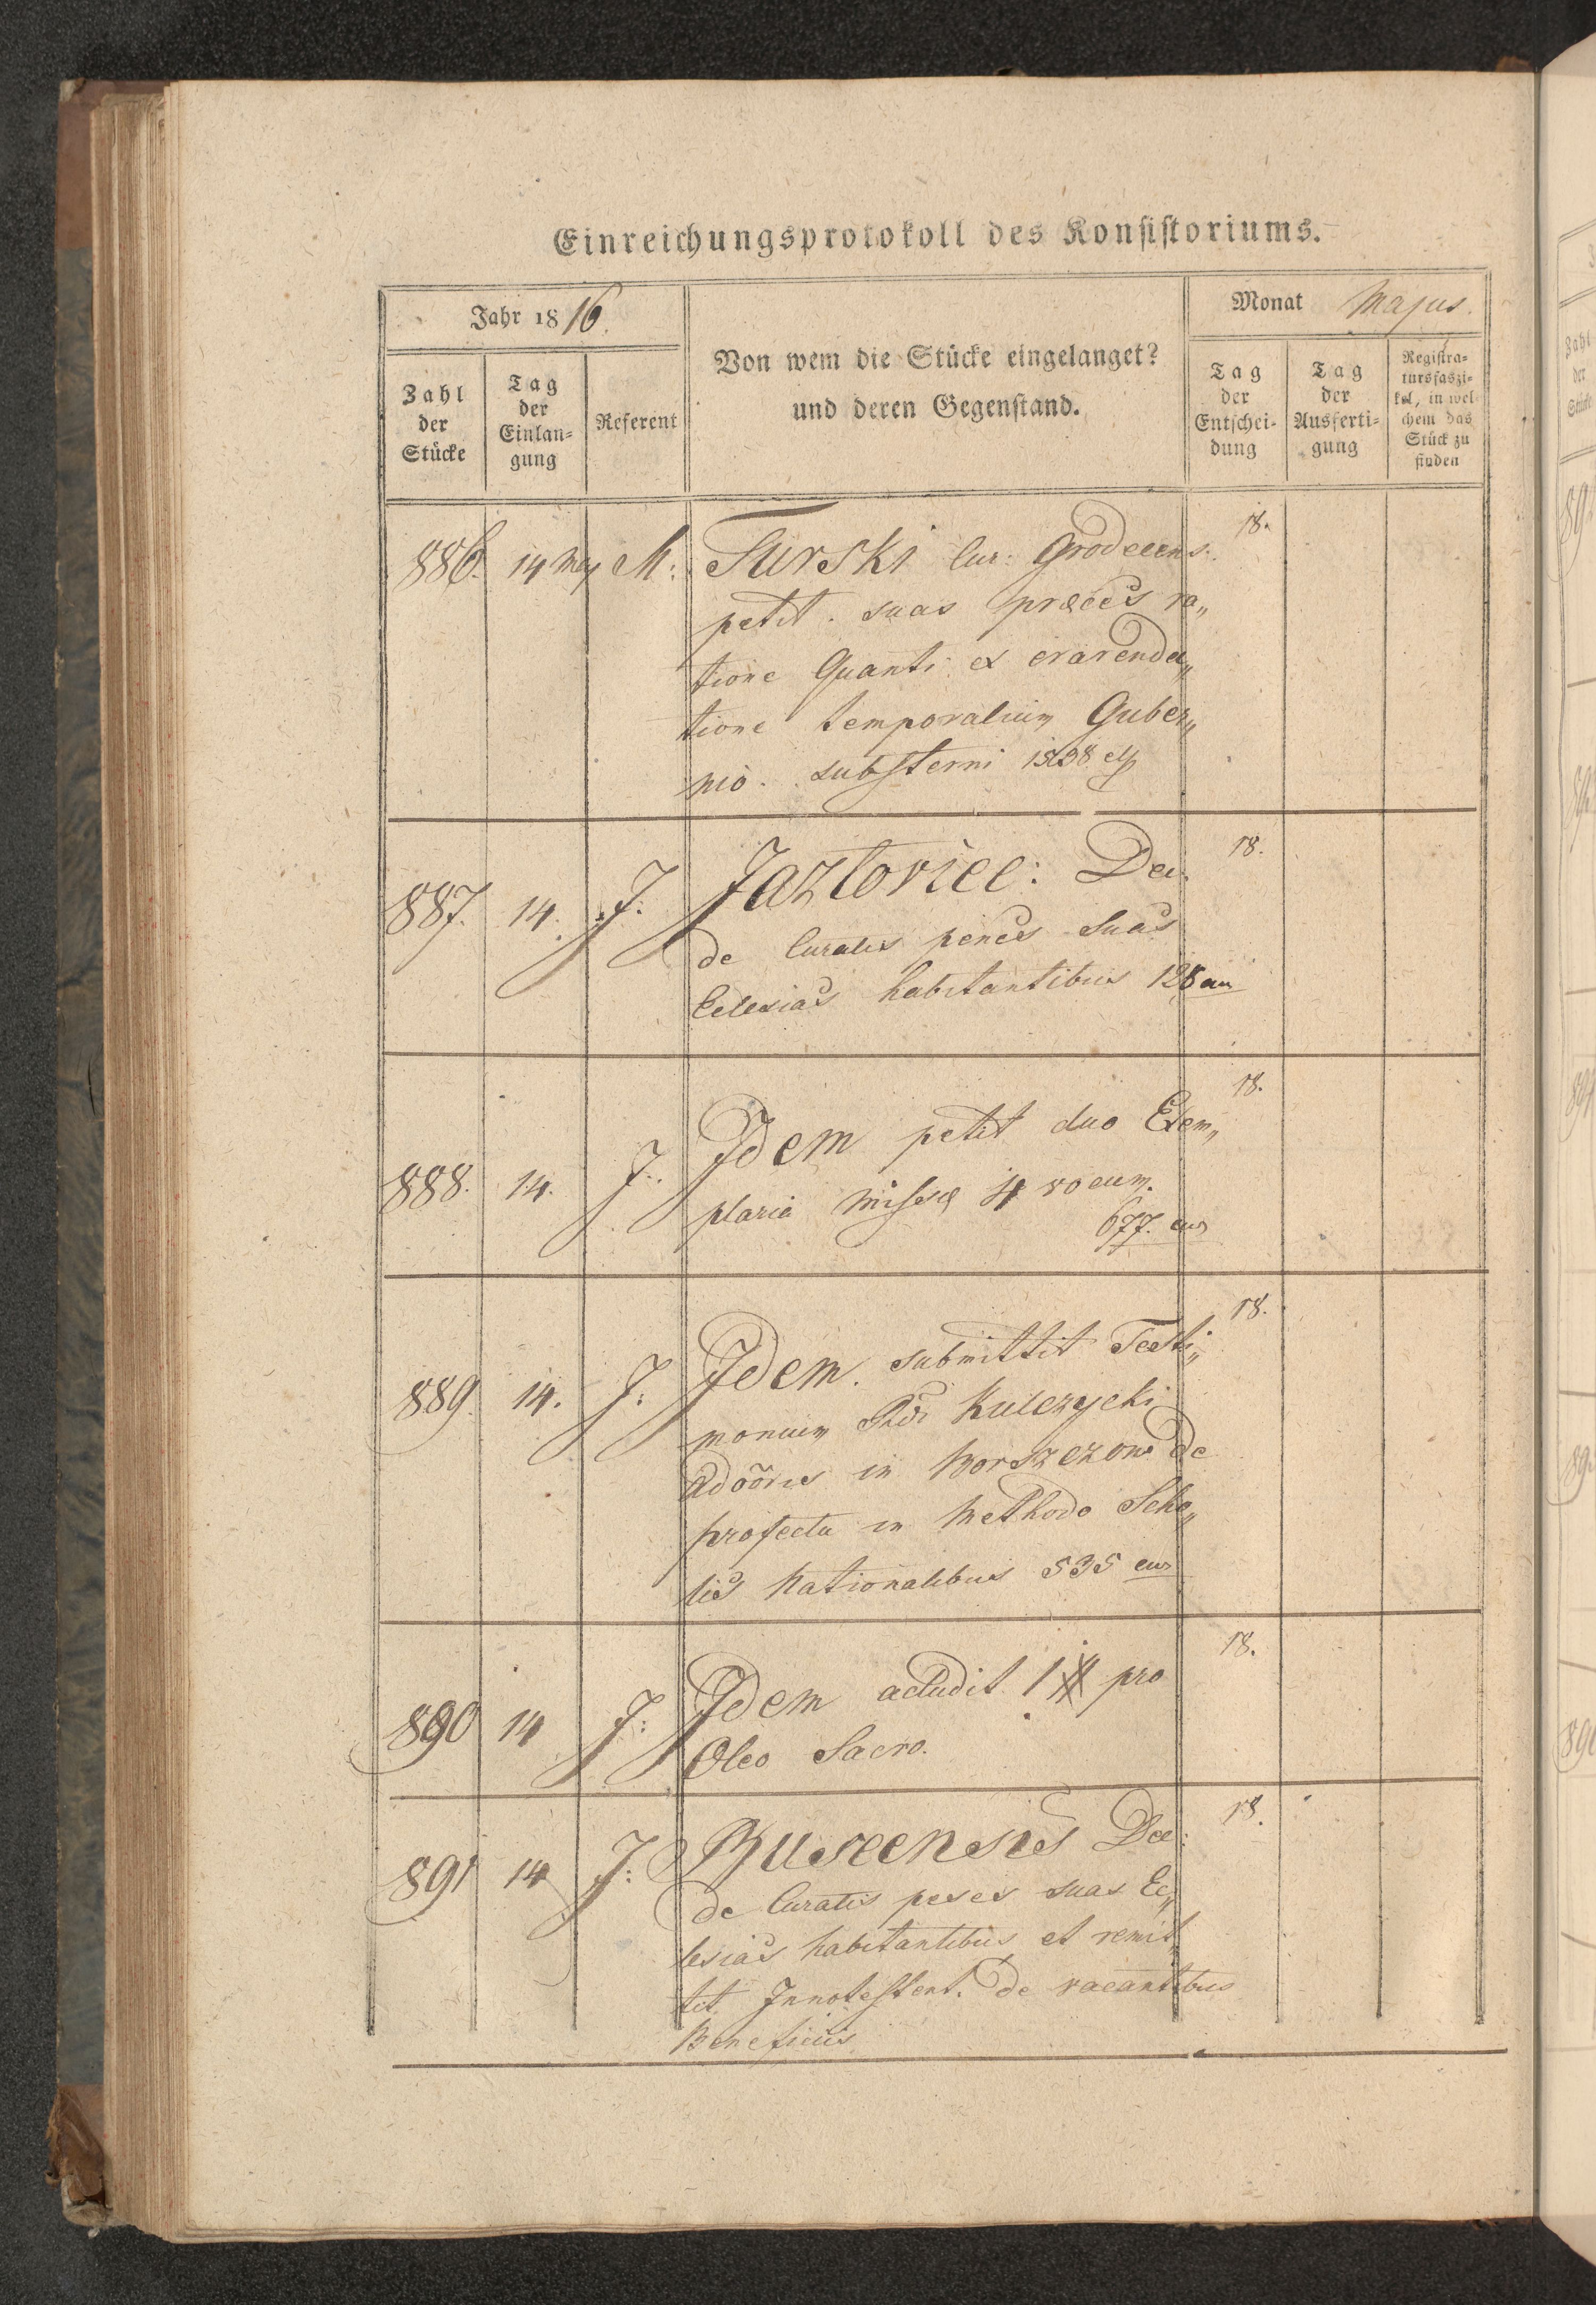 Einreichungsprotokoll des Konsistoriums.
Jahr 1816.
Monat Majus.
Zahl der Stücke
Tag der Einlan=gung
Referent
Von wem die Stücke eingelanget?
und deren Gegenstand.
Tag der Entschei=dung
Tag der Ausferti=gung
Registra=tursfaszi=kel, in wel=chem das Stück zu finden
886. 14 May M: Turski Cur: Grodecens: 18.
petit. suas præces ra„
tione Quanti ex exarenda„
tione temporalium Guber„
nio. substerni
887. 14. J: Jazloviec: Dec. 18.
de Curatis penes suas
Eclesias habitantibus 128
888. 14. J: Idem petit duo Exem„ 18.
plaria Missæ 4 vocum.
677.
889. 14. J: Idem. submittit Testi„ 18.
monium Kulczycki
in Borszczow de
profectu in Methodo Scho„
lis Nationalibus 535
890 14 J: Idem acludit 1 # pro 18.
Oleo Sacro.
891 14 J: Buscensis Dec: 18.
de Curatis penes suas Ec„
lesias habitantibus et remit„
tit Innotescent. de vacantibus
Beneficiis